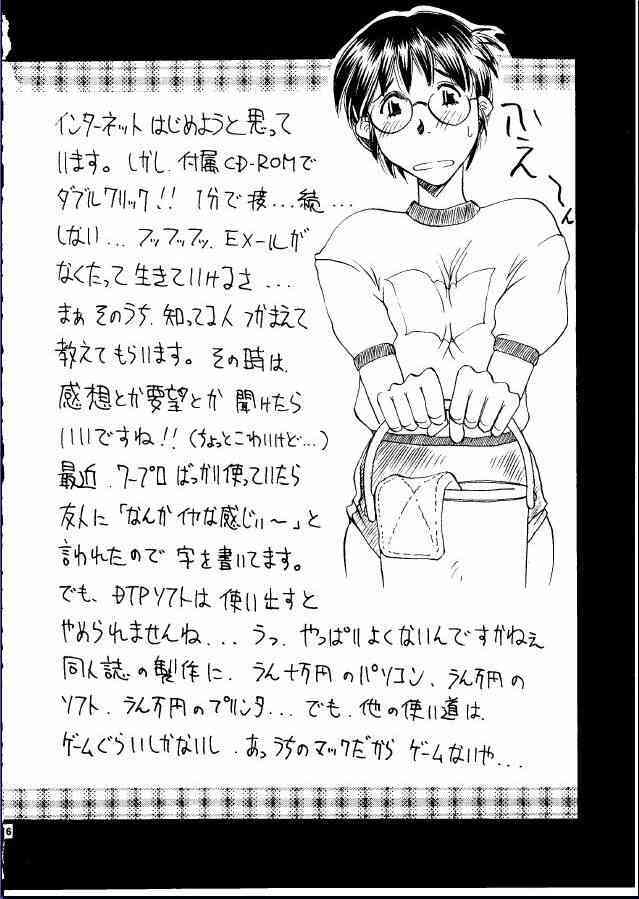 インターネットはじめようと思って
います。しかし、付属CD-ROMで
ダブルクリック!! 1分で接...続...
しない...フッフッフッ、EX-ルが
なくたって生きていけるさ...
まぁそのうち、知ってる人つかまえて
教えてもらいます。その時は、
感想とか要望とか聞けたら
いいですね!!(ちょっとこわいけど...)
最近、ワープロばっかり使っていたら
友人に「なんかイヤな感じぃ〜」と
言われたので字を書いてます。
でも、DTPソフトは使い出すと
やめられませんね...うっ、やっぱりよくないんですかねぇ
同人誌の製作に、うん十万円のパソコン、うん万円の
ソフト、うん万円のプリンタ...でも、他の使い道は
ゲームぐらいしかないし、あっうちのマックだからゲームないや...
ふえ〜ん
6